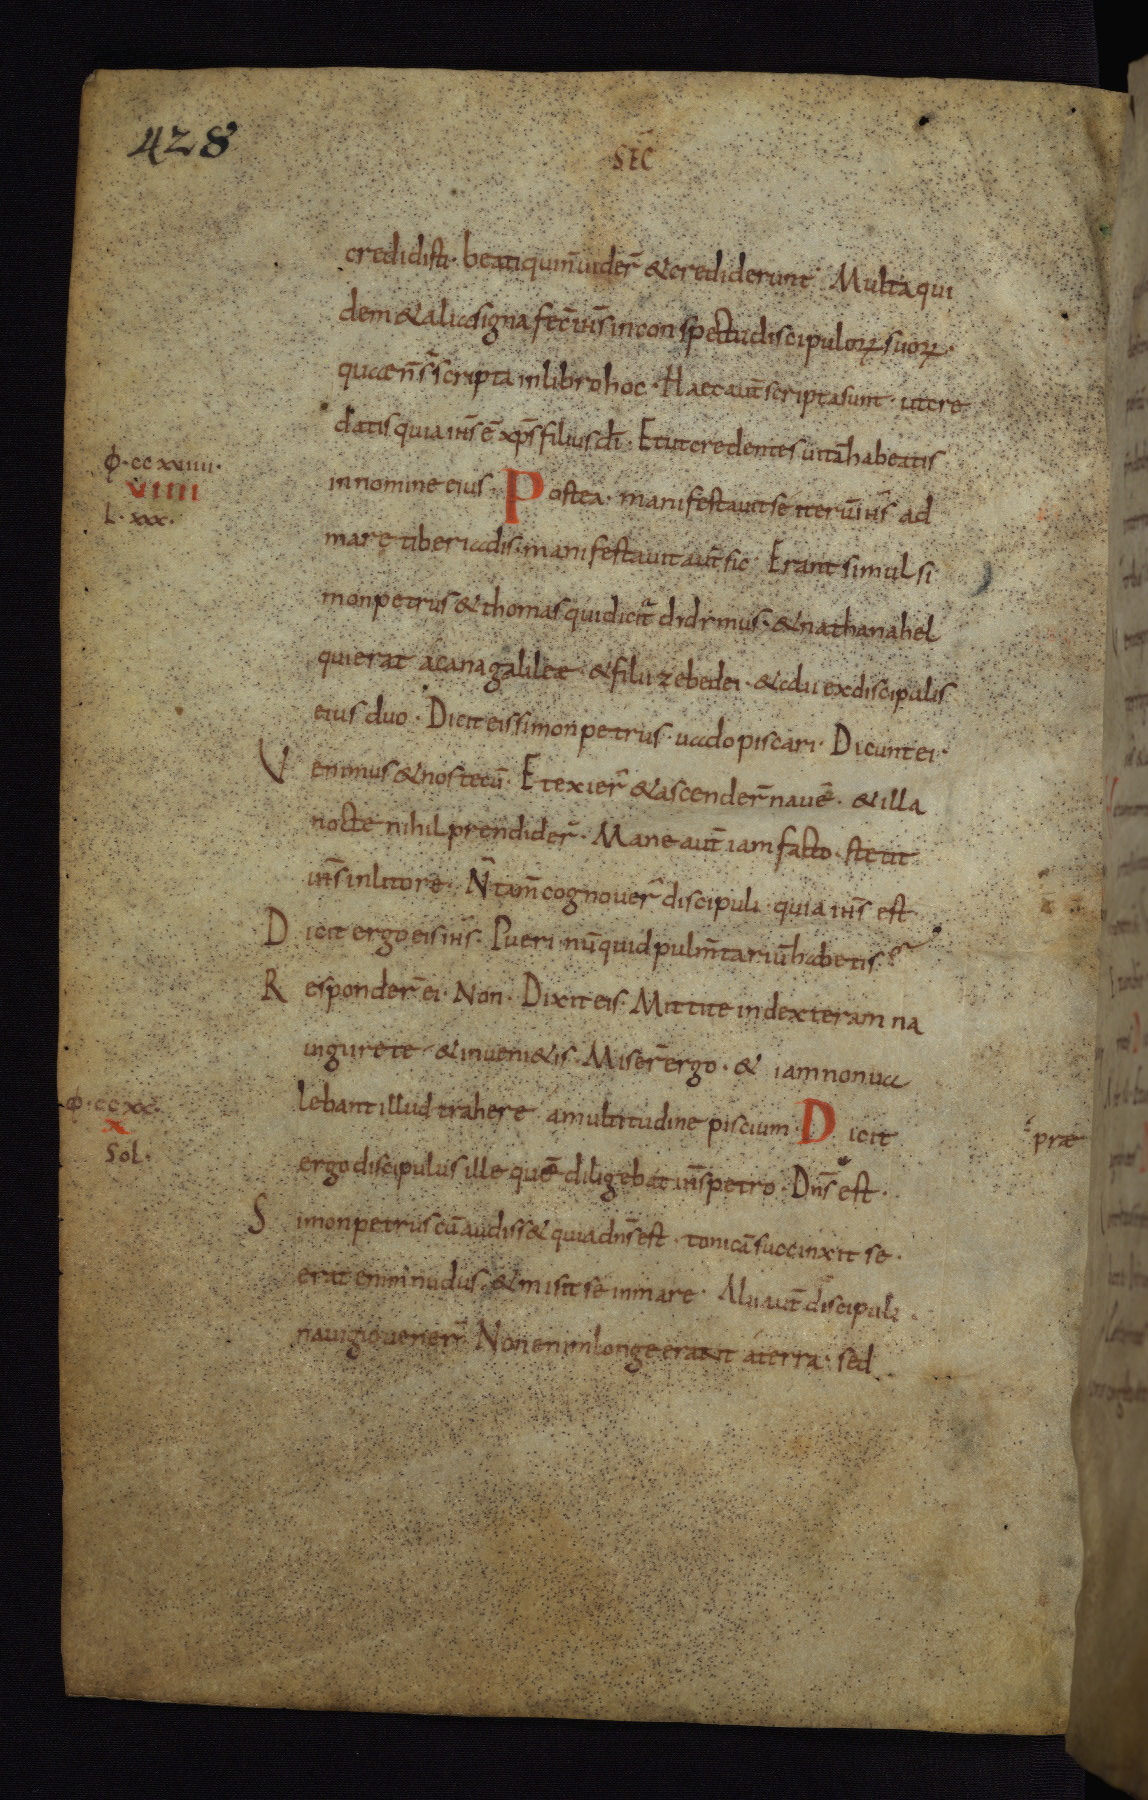 428
SEC̄
credidisti · beati qui n̄ uider̄ & crediderunt · Multa qui
dem & alia signa fec̄ ih̄s in conspectu discipuloꝝ suoꝝ ·
quae n̄ s̄ scripta in libro hoc · Haec aut̄ scripta sunt · ut cre
datis quia ih̄s ē xp̄s filius dī · Et ut credentes uitā habeatis
Φ · ccxviiii ·
VIIII
L · xxx ·
in nomine eius · Postea · manifestauit se iterū ih̄s ad
mare tiberiadis · manifestauit aut̄ sic · Erant simul si
mon petrus & thomas qui dicit᷑ didimus · & nathanahel
qui erat a cana galileae · & filii zebedei · & alii ex discipulis
eius duo · Dicit eis simon petrus · uado piscari · Dicunt ei ·
Venimus & nos tecū · Et exier̄ & ascender̄ nauē · & illa
nocte nihil prendider̄ · Mane aut̄ iam facto · stetit
ih̄s in litore · N̄ tam̄ cognouer̄ discipuli · quia ih̄s est
Dicit ergo eis ih̄s · Pueri · nūquid pulm̄tariū habetis ?
Responder̄ ei · Non · Dixit eis · Mittite in dexteram na
uigii rete · & inueni&is · Miser̄ ergo · & iam non ua
Φ · ccxx ·
X
Sol ·
lebant illud trahere a multitudine piscium · Dicit
prae
ergo discipulus ille quē diligebat ih̄s petro · Dn̄s est ·
Simon petrus cū audiss& quia dn̄s est · tonicā succinxit se ·
erat enim nudus · & misit se in mare · Alii aut̄ discipuli ·
nauigio uener̄ · Non enim longe erant a terra · sed